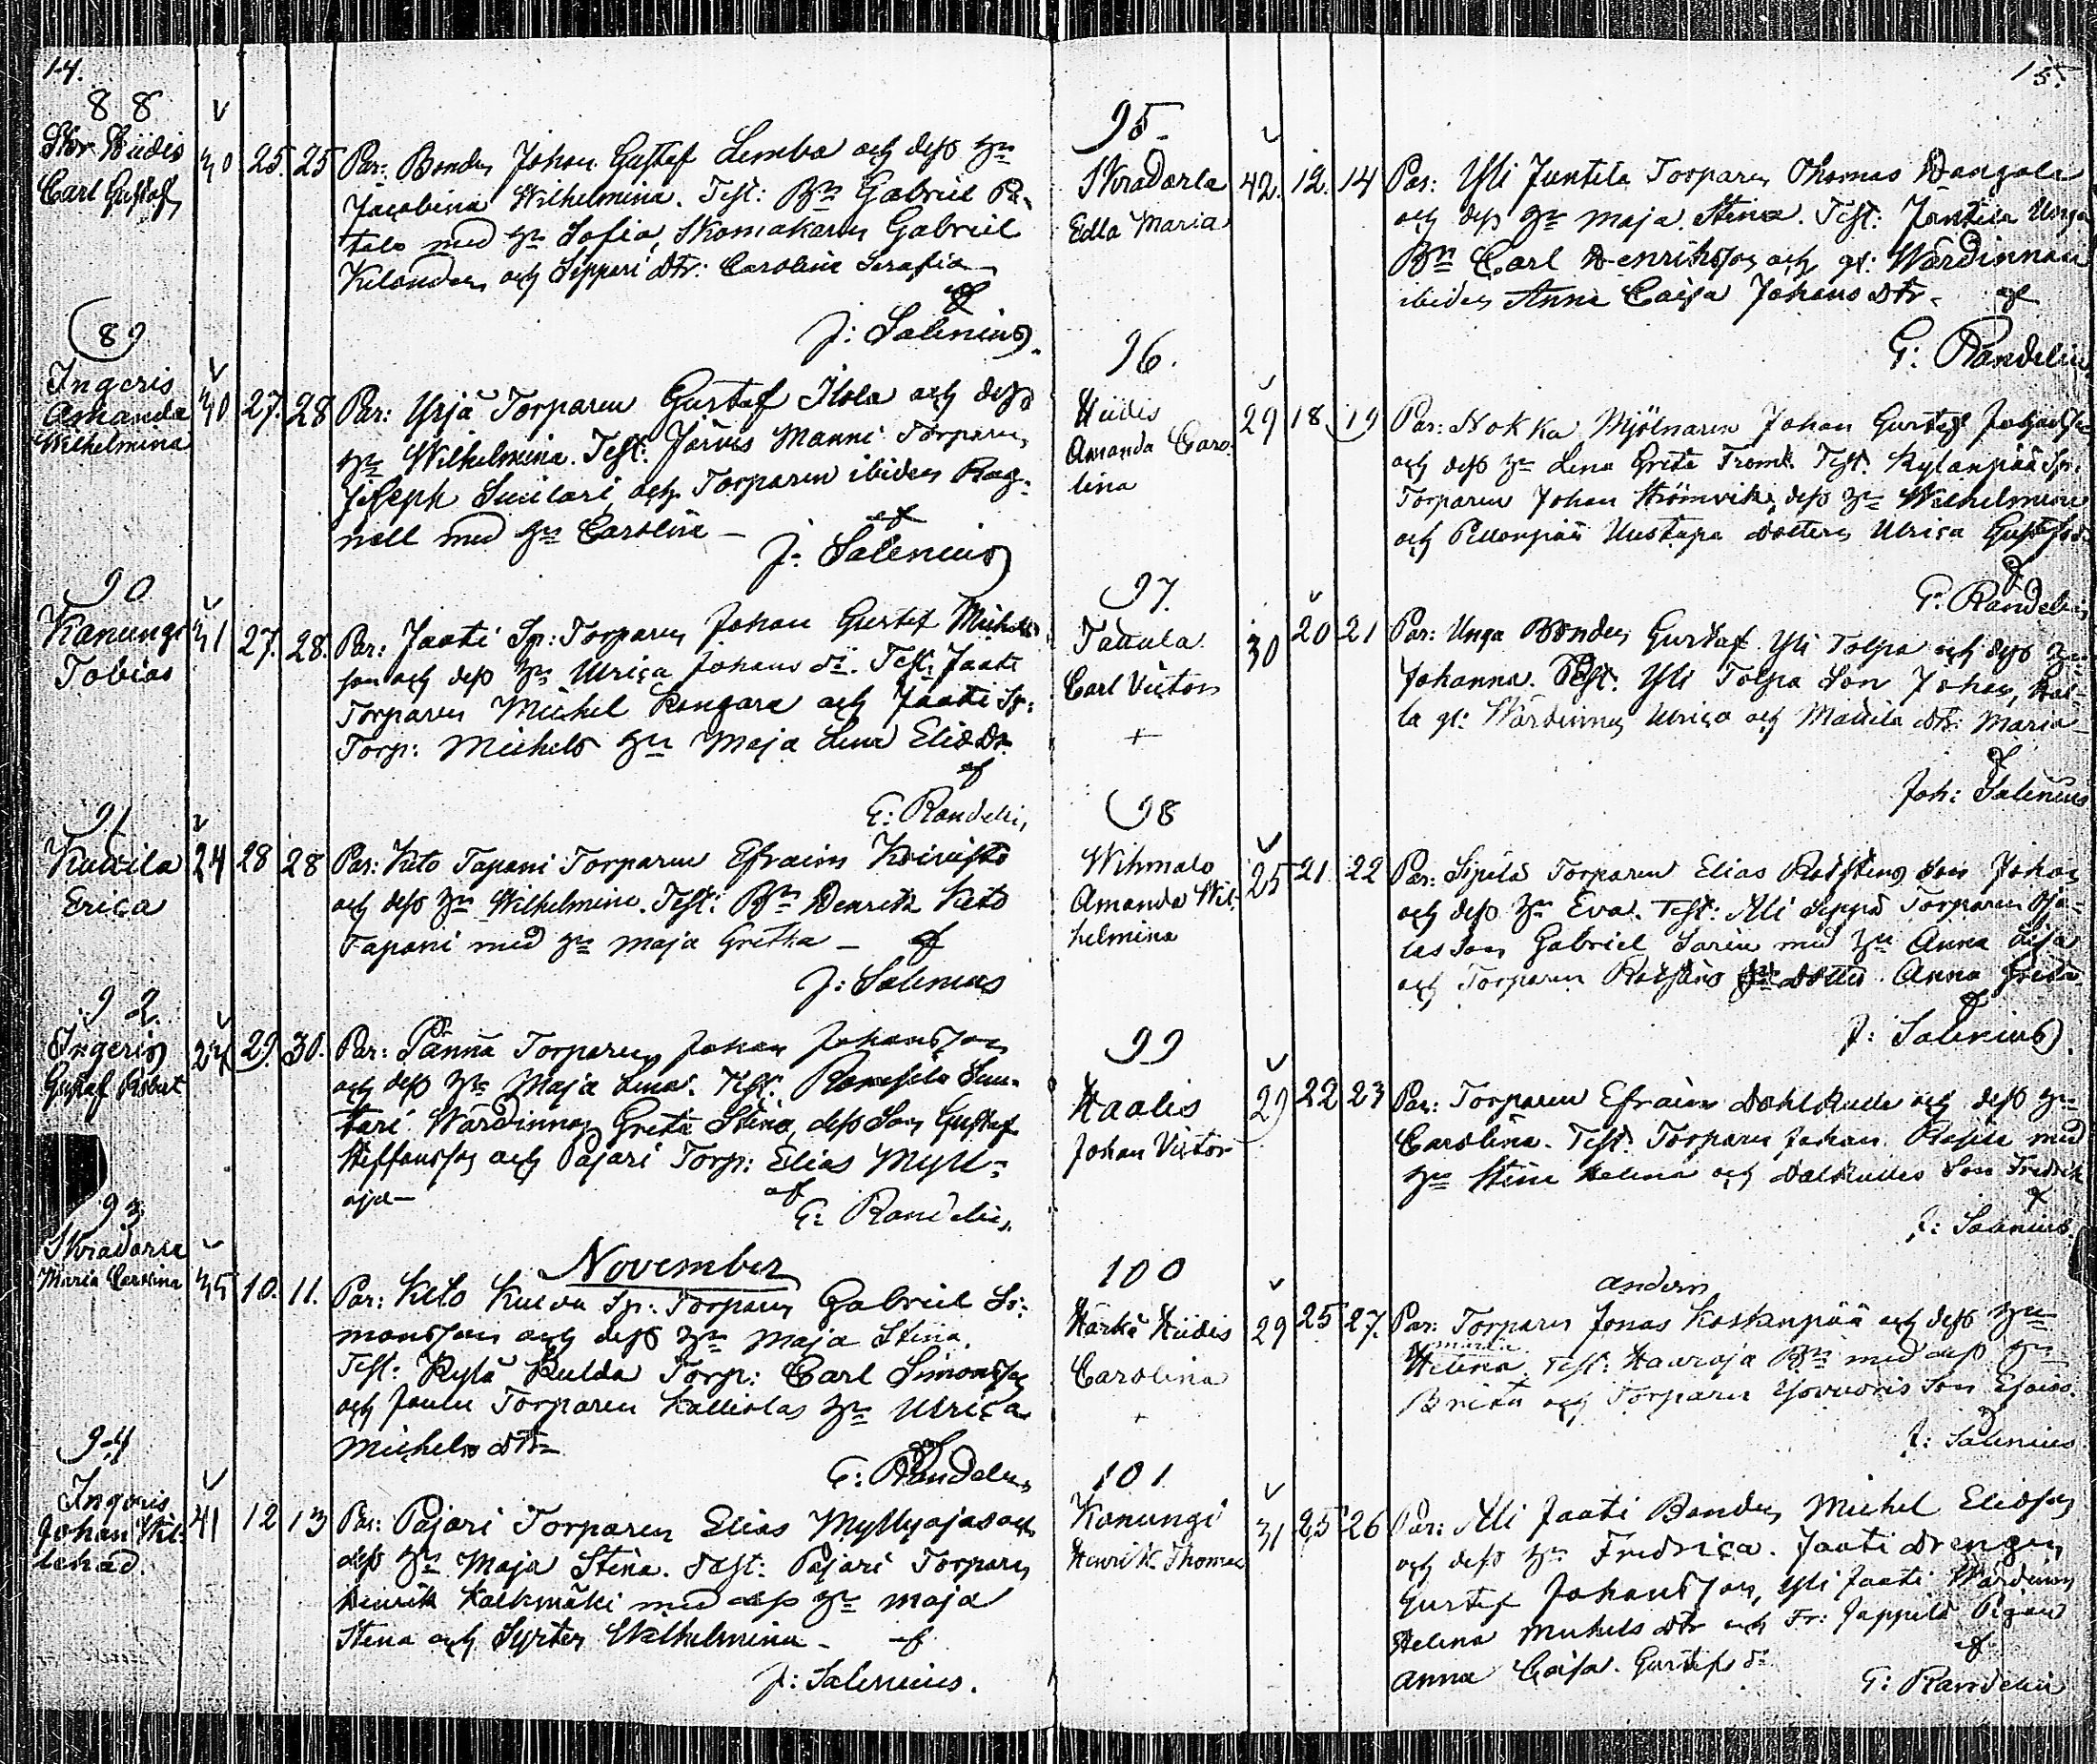 14.
88
Stor Hiidis
Carl Gustaf
30 25. 25
Par: Bonden Johan Gustaf Lemba och dess hu
Jacobina Wilhelmina. Test: Bn Gabriel Pa-
talo med hu Sofia, Skomakaren Gabriel
Kilander och Seppari dtr: Carolina Serafia
af
J: Salenius.
89
Ingeris
Amanda
Wilhelmina
30 27. 28
Par: Yrjä Torparen Gustaf Ilola och dess
hu Wilhelmina. Test: Järvis Manni Torparen
Joseph Suilari och Torparen ibidem Rag-
nell med hu Carolina
af
J: Salenius
90
Kanungi
Tobias
31 27. 28.
Par: Jaati Sp: Torparen Johan Gustaf Michels
son och dess hu Ulrica Johans dr. Test: Jaati
Torparen Michel Kangare och Jaati Sp:
Torp: Michels hu Maja Lena Elias dr.
af
G: Randelin
91
Kuckila
Erica
24 28 28
Par: Keto Tapani Torparen Efraim Koivisto
och dess hu Wilhelmina. Test: Bn Henrik Keto
Tapani med hu Maja Gretha
af
J: Salenius
92
Ingeris
Gustaf Robert
27 29. 30.
Par: Panna Torparen Johan Johansson
och dess hu Maja Lena. Test:
Wärdinnan Greta Stina, dess Son Gustaf
Steffansson och Pajari Torp: Elias Mylly-
oja
af
G: Randelin
93
Skradarla
Maria Carolina
November
35 10. 11.
Par: Keto Sp: Torparen Gabriel Si-
monsson och dess hu Maja Stina.
Test: Kylä Kulda Torp: Carl Simonsson
och Torparen Kalliolas hu Ulrica
Michels dtr
af
G: Randelin
94
Ingeris
Johan Wil-
lehad.
41 12 13
Par: Pajari Torparen Elias Myllyoja och
dess hu Maja Stina. Test: Pajari Torparen
Henrik Kalkmäki med dess hu Maja
Stina och Syster Wilhelmina
af
J: Salenius.
15.
95
Skradarla
Edla Maria
42. 12. 14
Par: Yli Juntila Torparen Thomas Hangala
och dess hu Maja Stina. Test: Juntila Unga
Bn Carl Henriksson och gl: Wärdinnan
ibidem Anna Caisa Johans dtr
af
G: Randelin
96.
Hiidis
Amanda Caro-
lina
29 18 19
Par: Nokka Mjölnaren Johan Gustaf
och dess hu Lena Greta Fromk. Test: Kylänpää Sp:
Torparen Johan Strömvik, dess hu Wilhelmina
och dottren Ulrica
af
G: Randelin
97.
Tattula
Carl Victor
+
30 20 21
Par: Unga Bonden Gustaf Yli Tolpa och dess hu
Johanna. Test: Yli Tolpa Son Johan,
la gl: Wärdinnan Ulrica och Mattila dtr: Maria
af
Joh: Salenius
98
Wihmalo
Amanda Wil-
helmina
25 21. 22
Par: Sipilä Torparen Elias Son Johan
och dess hu Eva. Test: Ali Seppä Torparen
Son Gabriel med hu Anna Lisa
och Torparen dotter Anna Greta
af
J: Salenius
99
Haalis
Johan Victor
29 22 23
Par: Torparen Efraim Dahlkulla och dess hu
Carolina. Test: Torparen Johan med
hu Stina Helena och Dalkullas Son Fredrik
af
J: Salenius.
100
Härkä Hiidis
Carolina
+
29 25 27.
anders
Par: Torparen Jonas Koskenpää och dess hu
Maria
Helena. Test: Hauroja Bn med dess hu
Brita och Torparen Son Esaias.
af
J: Salenius
101
Kanungi
Henrik Thomas
31 25 26
Par: Ali Jaati Bonden Michel Eliasson
och dess hu Fredrica. Jaati drengen
Gustaf Johansson, Yli Jaati Wärdinnan
Helena Michels dtr och Fr: Jappila Pigan
Anna Caisa. Gustafs dr
af
G: Randelin